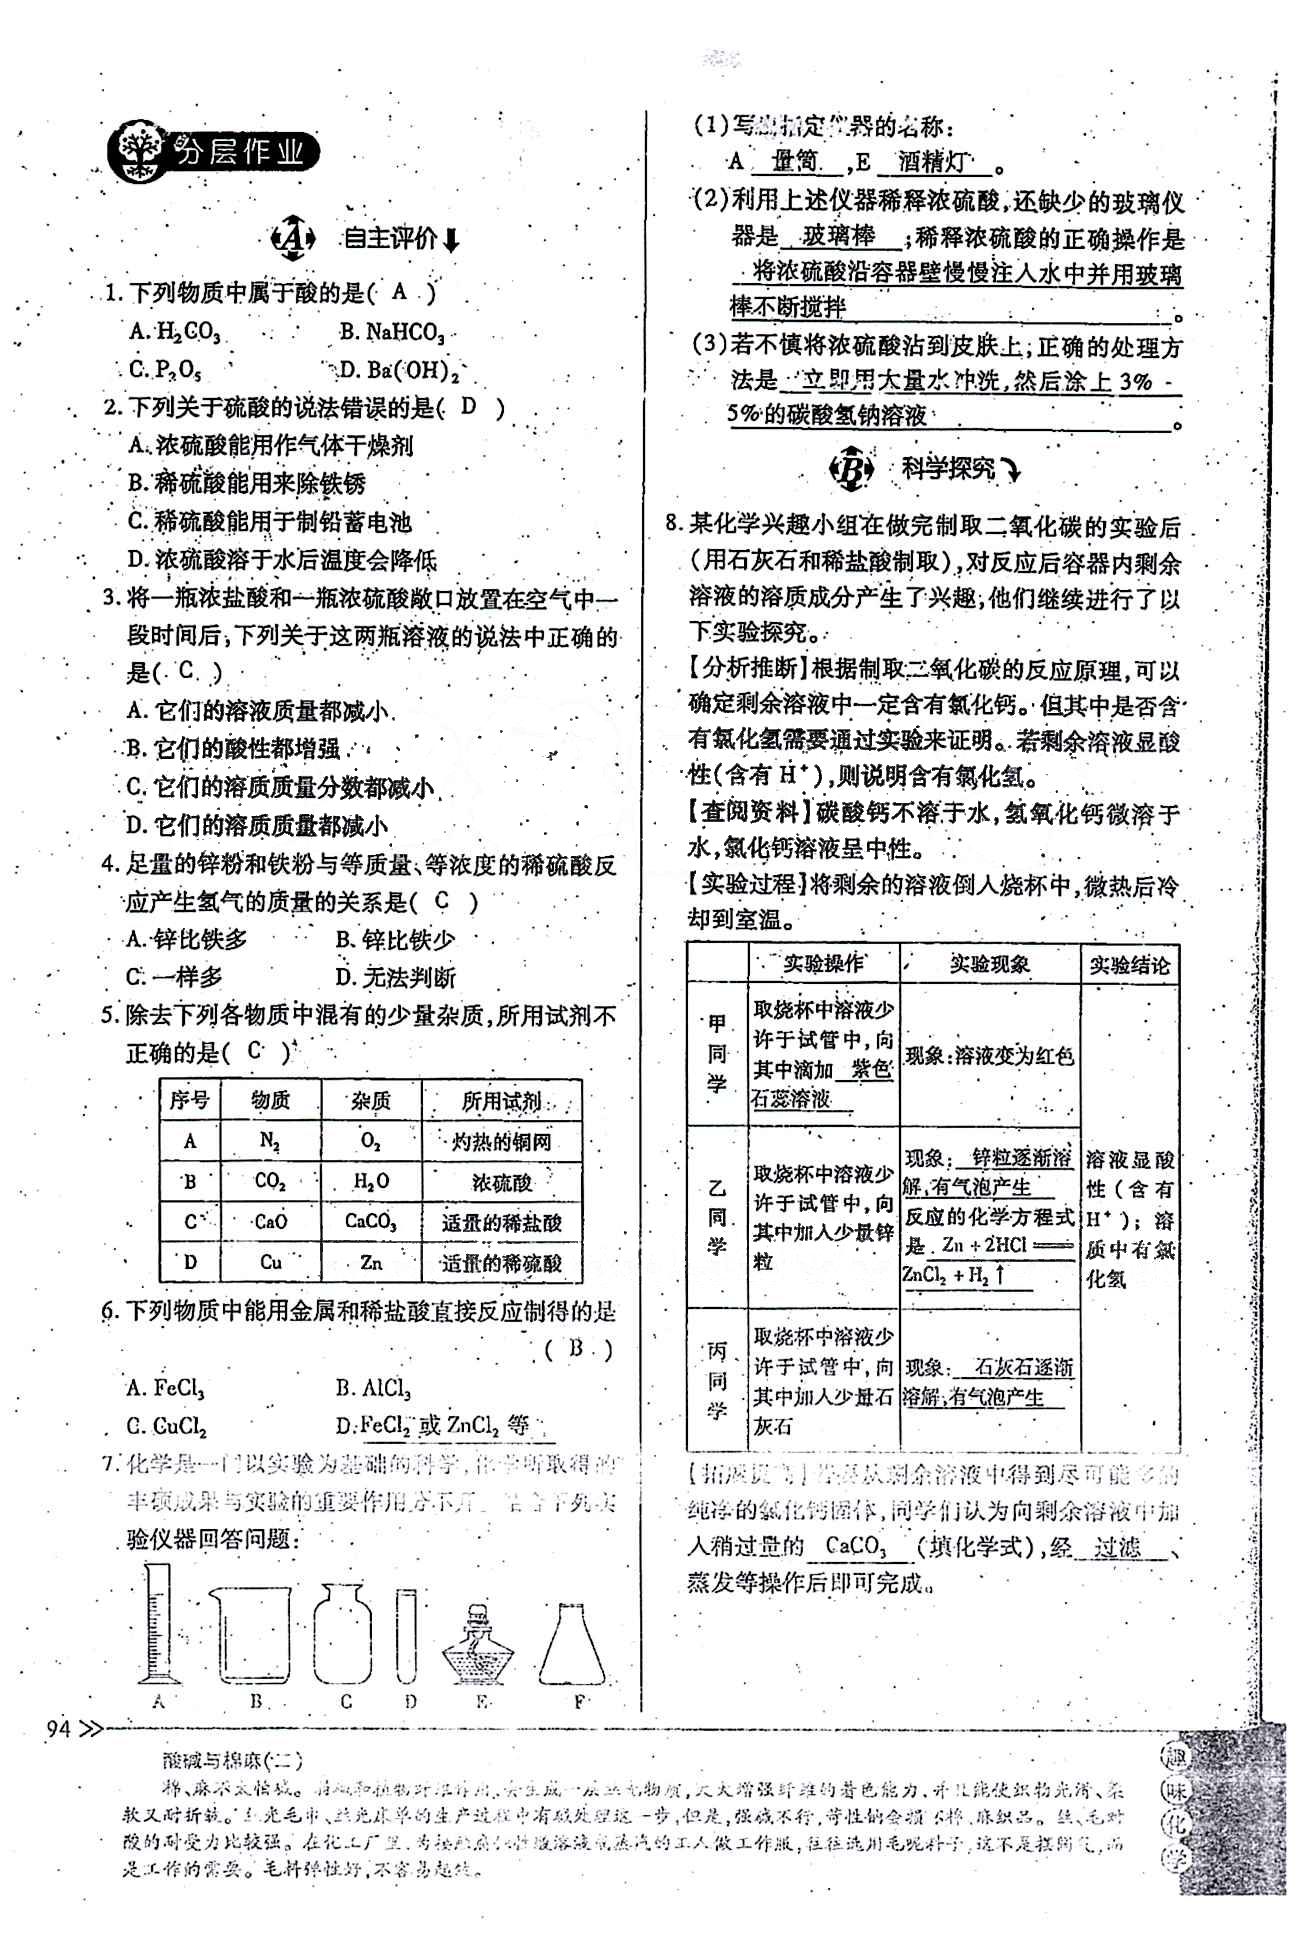 分层作业
A 自主评价
1. 下列物质中属于酸的是( A )
A. H₂CO₃ B. NaHCO₃
C. P₂O₅ D. Ba(OH)₂
2. 下列关于硫酸的说法错误的是( D )
A. 浓硫酸能用作气体干燥剂
B. 稀硫酸能用来除铁锈
C. 稀硫酸能用于制铅蓄电池
D. 浓硫酸溶于水后温度会降低
3. 将一瓶浓盐酸和一瓶浓硫酸敞口放置在空气中一
段时间后,下列关于这两瓶溶液的说法中正确的
是( C )
A. 它们的溶液质量都减小
B. 它们的酸性都增强
C. 它们的溶质质量分数都减小
D. 它们的溶质质量都减小
4. 足量的锌粉和铁粉与等质量、等浓度的稀硫酸反
应产生氢气的质量的关系是( C )
A. 锌比铁多 B. 锌比铁少
C. 一样多 D. 无法判断
5. 除去下列各物质中混有的少量杂质,所用试剂不
正确的是( C )
序号 物质 杂质 所用试剂
A N₂ O₂ 灼热的铜网
B CO₂ H₂O 浓硫酸
C CaO CaCO₃ 适量的稀盐酸
D Cu Zn 适量的稀硫酸
6. 下列物质中能用金属和稀盐酸直接反应制得的是
( B )
A. FeCl₃ B. AlCl₃
C. CuCl₂ D. FeCl₂ 或 ZnCl₂ 等
7. 化学是一门以实验为基础的科学,化学所取得的
丰硕成果与实验的重要作用分不开。结合下列实
验仪器回答问题:
A B C D E F
(1)写出指定仪器的名称:
A 量筒 ,E 酒精灯 。
(2)利用上述仪器稀释浓硫酸,还缺少的玻璃仪
器是 玻璃棒 ;稀释浓硫酸的正确操作是
将浓硫酸沿容器壁慢慢注入水中并用玻璃
棒不断搅拌 。
(3)若不慎将浓硫酸沾到皮肤上,正确的处理方
法是 立即用大量水冲洗,然后涂上 3% -
5%的碳酸氢钠溶液 。
B 科学探究
8. 某化学兴趣小组在做完制取二氧化碳的实验后
(用石灰石和稀盐酸制取),对反应后容器内剩余
溶液的溶质成分产生了兴趣,他们继续进行了以
下实验探究。
【分析推断】根据制取二氧化碳的反应原理,可以
确定剩余溶液中一定含有氯化钙。但其中是否含
有氯化氢需要通过实验来证明。若剩余溶液显酸
性(含有 H⁺),则说明含有氯化氢。
【查阅资料】碳酸钙不溶于水,氢氧化钙微溶于
水,氯化钙溶液呈中性。
【实验过程】将剩余的溶液倒入烧杯中,微热后冷
却到室温。
实验操作 实验现象 实验结论
甲同学 取烧杯中溶液少许于试管中,向其中滴加 紫色石蕊溶液 现象:溶液变为红色
乙同学 取烧杯中溶液少许于试管中,向其中加入少量锌粒 现象: 锌粒逐渐溶解,有气泡产生 反应的化学方程式是 Zn + 2HCl ══ ZnCl₂ + H₂↑ 溶液显酸性(含有H⁺);溶质中有氯化氢
丙同学 取烧杯中溶液少许于试管中,向其中加入少量石灰石 现象: 石灰石逐渐溶解,有气泡产生
【拓展提高】若要从剩余溶液中得到尽可能多的
纯净的氯化钙固体,同学们认为向剩余溶液中加
入稍过量的 CaCO₃ (填化学式),经 过滤 、
蒸发等操作后即可完成。
94
酸碱与棉麻(二)
棉、麻不太怕碱。 烧碱和植物纤维作用,会生成一层丝光物质,大大增强纤维的着色能力,并且能使织物光滑、柔
软又耐折皱。丝光毛巾、丝光床单的生产过程中有碱处理这一步,但是,强碱不行,苛性钠会损坏棉、麻织品。 丝、毛对
酸的耐受力比较强。在化工厂里, 的工人做工作服,往往选用毛呢料子,这不是摆阔气,而
是工作的需要。毛料弹性好,不容易起皱。
趣味化学